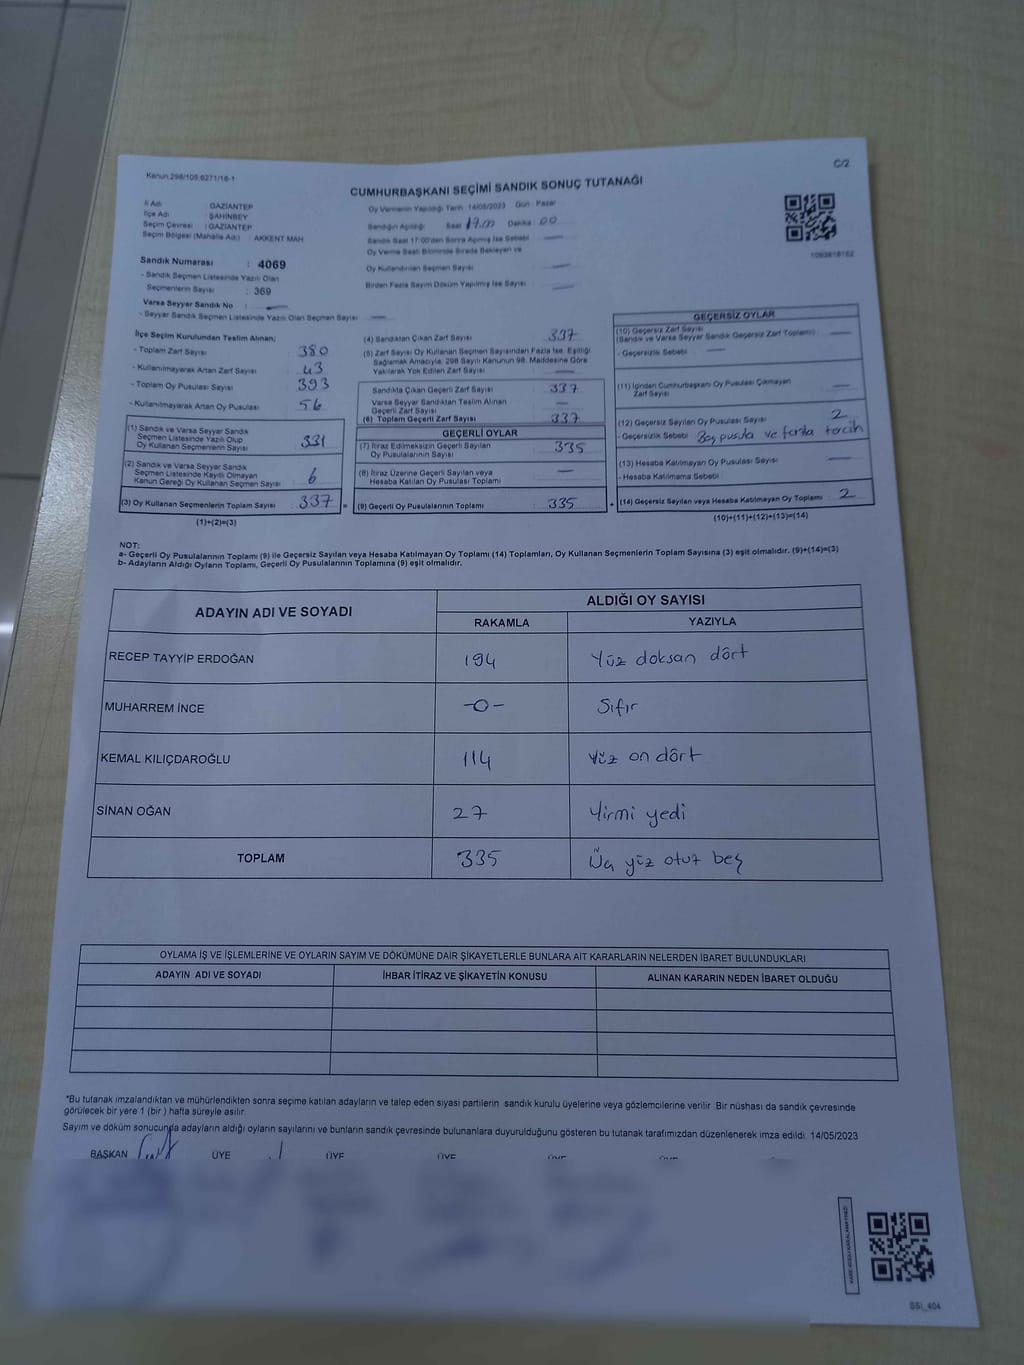 C/2
Kanun:298/105,6271/18-1
CUMHURBAŞKANI SEÇİMİ SANDIK SONUÇ TUTANAĞI
İl Adı : GAZİANTEP
İlçe Adı : ŞAHİNBEY
Seçim Çevresi : GAZİANTEP
Seçim Bölgesi (Mahalle Adı) : AKKENT MAH.
Sandık Numarası : 4069
- Sandık Seçmen Listesinde Yazılı Olan
Seçmenlerin Sayısı : 369
Varsa Seyyar Sandık No :
- Seyyar Sandık Seçmen Listesinde Yazılı Olan Seçmen Sayısı
Oy Vermenin Yapıldığı Tarih :14/05/2023 Gün : Pazar
Sandığın Açıldığı Saat Dakika 00
Sandık Saat 17:00'den Sonra Açılmış İse Sebebi
Oy Verme Saati Bitiminde Sırada Bekleyen ve
Oy Kullandırılan Seçmen Sayısı
Birden Fazla Sayım Döküm Yapılmış İse Sayısı
İlçe Seçim Kurulundan Teslim Alınan;
- Toplam Zarf Sayısı 380
- Kullanılmayarak Artan Zarf Sayısı 43
- Toplam Oy Pusulası Sayısı 393
- Kullanılmayarak Artan Oy Pusulası 56
(1) Sandık ve Varsa Seyyar Sandık
Seçmen Listesinde Yazılı Olup
Oy Kullanan Seçmenlerin Sayısı 331
(2) Sandık ve Varsa Seyyar Sandık
Seçmen Listesinde Kayıtlı Olmayan
Kanun Gereği Oy Kullanan Seçmen Sayısı 6
(3) Oy Kullanan Seçmenlerin Toplam Sayısı 337 =
(1)+(2)=(3)
(4) Sandıktan Çıkan Zarf Sayısı 337
(5) Zarf Sayısı Oy Kullanan Seçmen Sayısından Fazla İse, Eşitliği
Sağlamak Amacıyla, 298 Sayılı Kanunun 98. Maddesine Göre
Yakılarak Yok Edilen Zarf Sayısı
Sandıkta Çıkan Geçerli Zarf Sayısı 337
Varsa Seyyar Sandıktan Teslim Alınan
Geçerli Zarf Sayısı
(6) Toplam Geçerli Zarf Sayısı 337
GEÇERLİ OYLAR
(7) İtiraz Edilmeksizin Geçerli Sayılan
Oy Pusulalarının Sayısı 335
(8) İtiraz Üzerine Geçerli Sayılan veya
Hesaba Katılan Oy Pusulası Toplamı
(9) Geçerli Oy Pusulalarının Toplamı 335 +
GEÇERSİZ OYLAR
(10) Geçersiz Zarf Sayısı
(Sandık ve Varsa Seyyar Sandık Geçersiz Zarf Toplamı)
- Geçersizlik Sebebi
(11) İçinden Cumhurbaşkanı Oy Pusulası Çıkmayan
Zarf Sayısı
(12) Geçersiz Sayılan Oy Pusulası Sayısı 2
- Geçersizlik Sebebi Boş pusula ve fazla tercih
(13) Hesaba Katılmayan Oy Pusulası Sayısı
- Hesaba Katılmama Sebebi
(14) Geçersiz Sayılan veya Hesaba Katılmayan Oy Toplamı : 2
(10)+(11)+(12)+(13)=(14)
NOT:
a- Geçerli Oy Pusulalarının Toplamı (9) ile Geçersiz Sayılan veya Hesaba Katılmayan Oy Toplamı (14) Toplamları, Oy Kullanan Seçmenlerin Toplam Sayısına (3) eşit olmalıdır. (9)+(14)=(3)
b- Adayların Aldığı Oyların Toplamı, Geçerli Oy Pusulalarının Toplamına (9) eşit olmalıdır.
ADAYIN ADI VE SOYADI
ALDIĞI OY SAYISI
RAKAMLA YAZIYLA
RECEP TAYYİP ERDOĞAN 194 Yüz doksan dört
MUHARREM İNCE -0- Sıfır
KEMAL KILIÇDAROĞLU 114 Yüz on dört
SİNAN OĞAN 27 Yirmi yedi
TOPLAM 335 Üç yüz otuz beş
OYLAMA İŞ VE İŞLEMLERİNE VE OYLARIN SAYIM VE DÖKÜMÜNE DAİR ŞİKAYETLERLE BUNLARA AİT KARARLARIN NELERDEN İBARET BULUNDUKLARI
ADAYIN ADI VE SOYADI İHBAR İTİRAZ VE ŞİKAYETİN KONUSU ALINAN KARARIN NEDEN İBARET OLDUĞU
*Bu tutanak imzalandıktan ve mühürlendikten sonra seçime katılan adayların ve talep eden siyasi partilerin sandık kurulu üyelerine veya gözlemcilerine verilir. Bir nüshası da sandık çevresinde
görülecek bir yere 1 (bir) hafta süreyle asılır.
Sayım ve döküm sonucunda adayların aldığı oyların sayılarını ve bunların sandık çevresinde bulunanlara duyurulduğunu gösteren bu tutanak tarafımızdan düzenlenerek imza edildi. 14/05/2023
BAŞKAN ÜYE ÜYE ÜYE
SSI_404